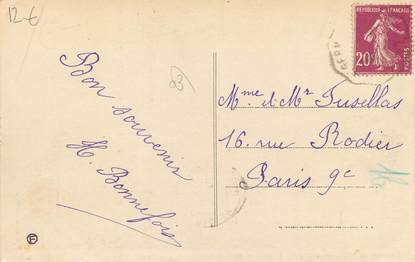 12€
Bon souvenir
H. Bonnefois
93
REPUBLIQUE FRANÇAISE
20c
POSTES
Mme & Mr Fusellas
16. rue Rodier
Paris 9e
E